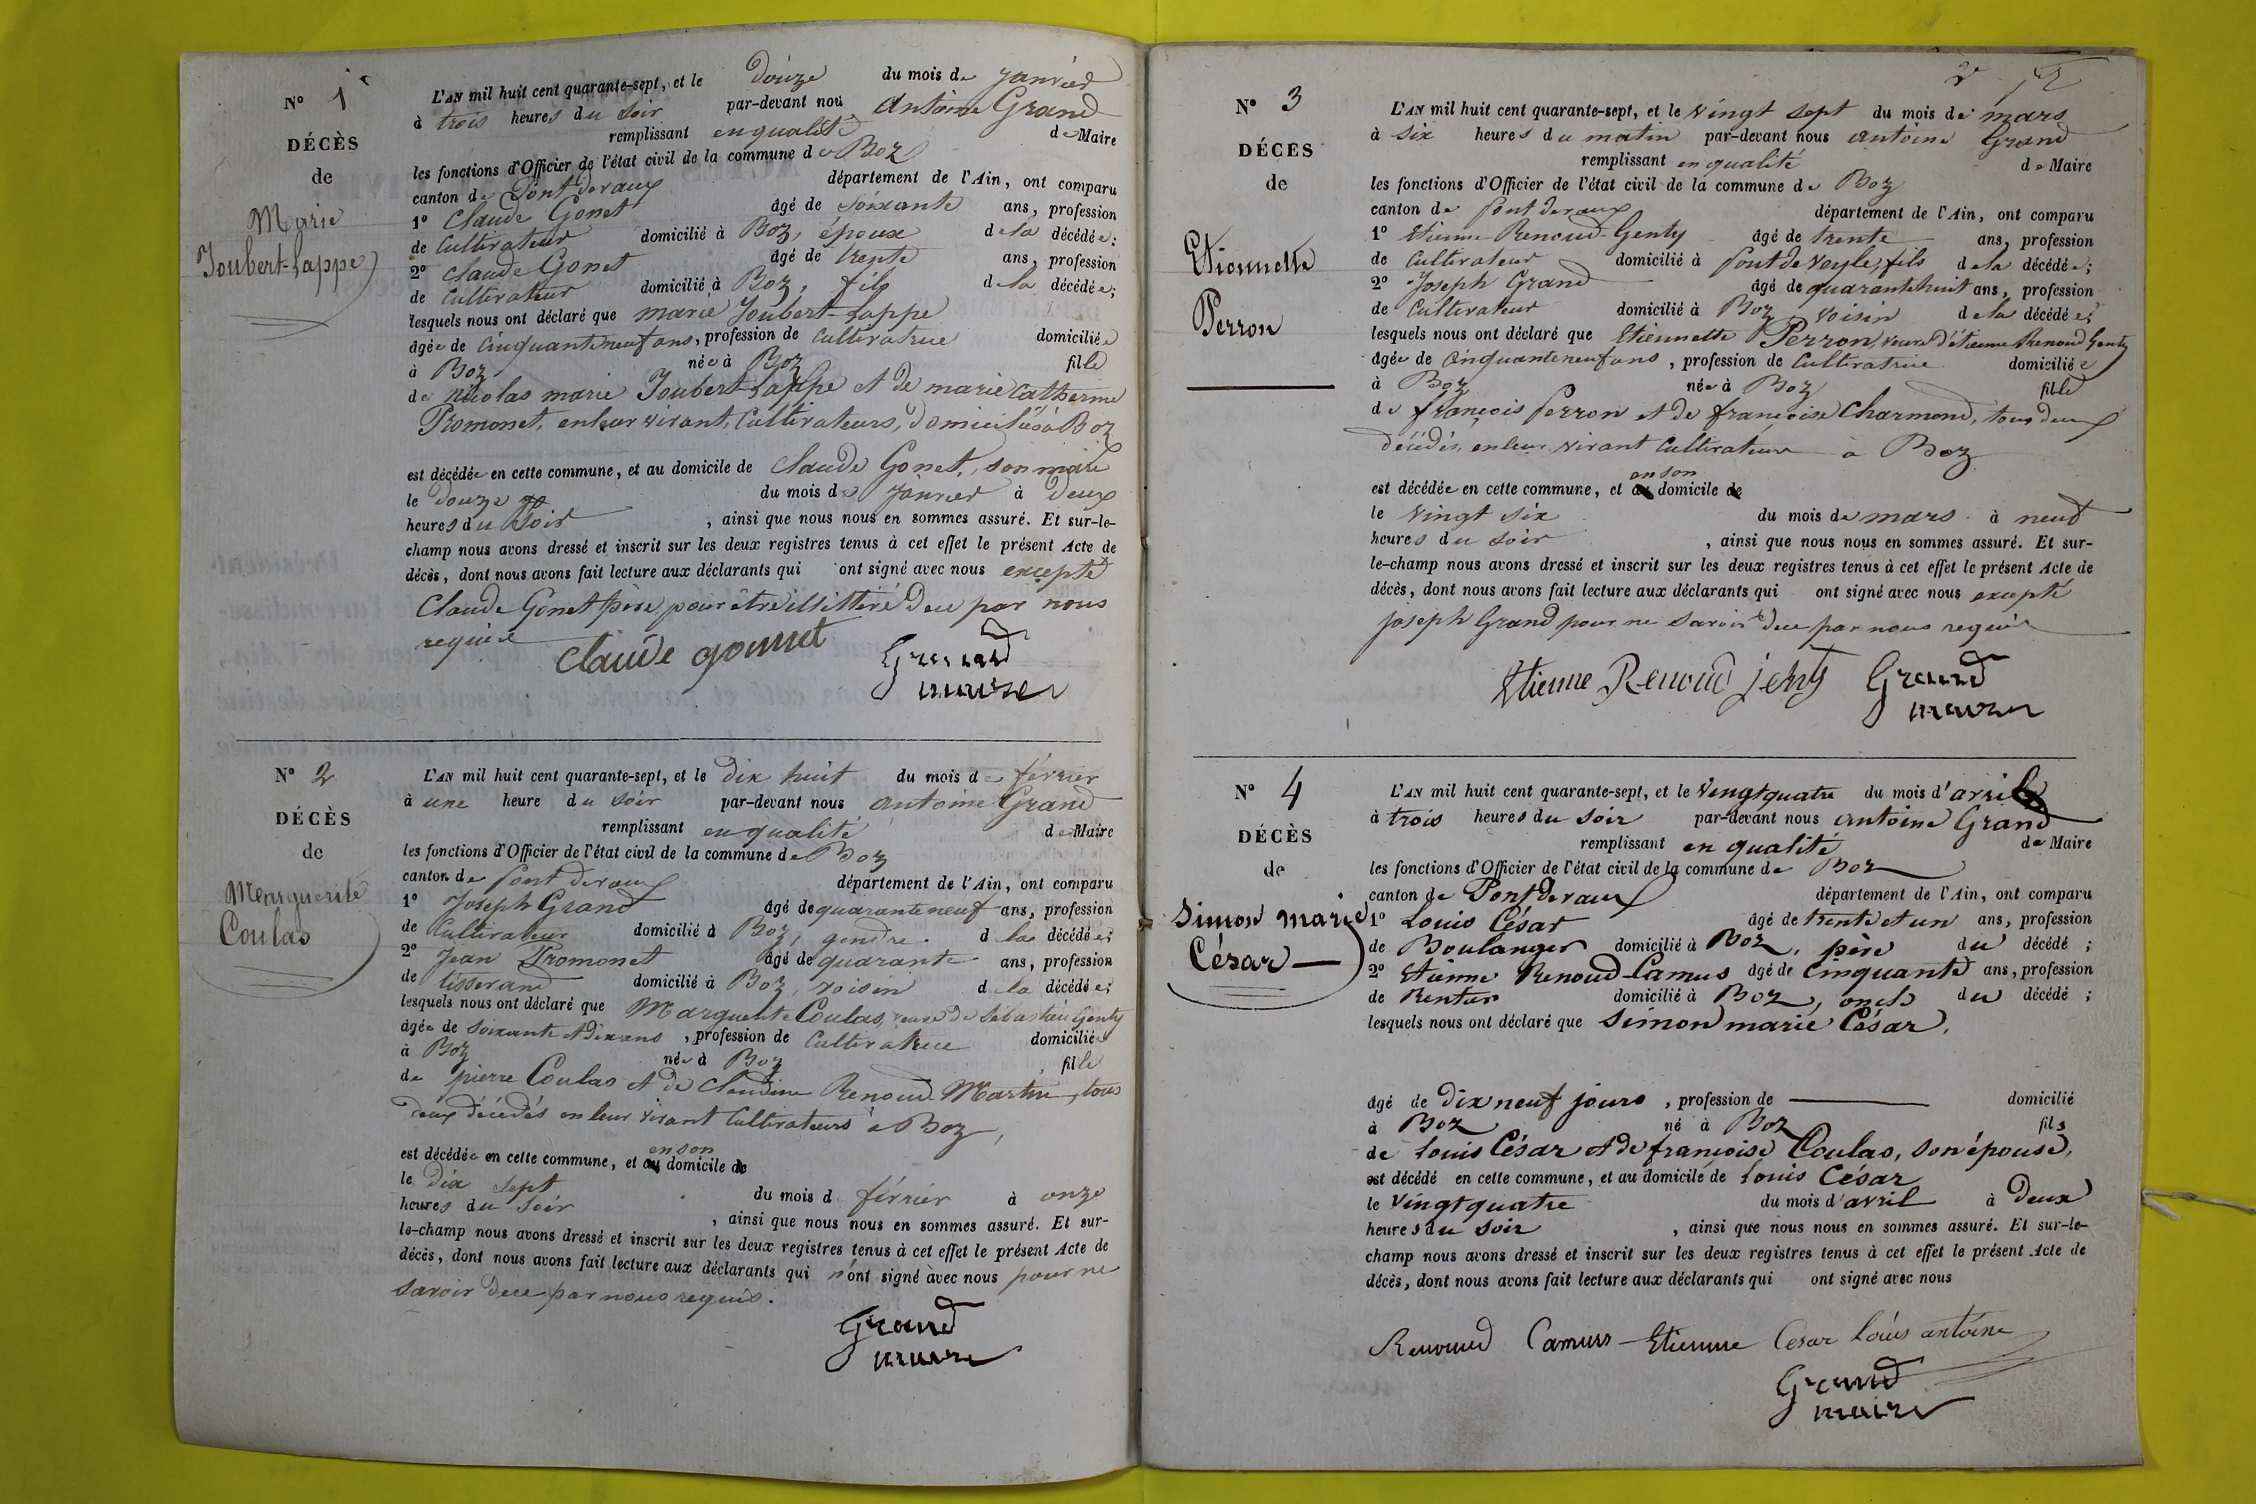 N° 1
DÉCÈS
de
Marie
Joubert-Lappe
L'AN mil huit cent quarante-sept, et le douze du mois de janvier
à trois heures du soir par-devant nous Antoine Grand
remplissant en qualité de Maire
les fonctions d'Officier de l'état civil de la commune de Boz
canton de Pont devaux département de l'Ain, ont comparu
1° Claude Gonet âgé de soixante ans, profession
de Cultivateur domicilié à Boz, époux de la décédée;
2° Claude Gonet âgé de trente ans, profession
de Cultivateur domicilié à Boz, fils de la décédée;
lesquels nous ont déclaré que marie Joubert-Lappe
âgée de cinquante neuf ans, profession de Cultivatrice domiciliée
à Boz née à Boz fille
de nicolas marie Joubert-Lappe et de marie Catherine
Promonet, en leur vivant, Cultivateurs, domiciliés à Boz
est décédée en cette commune, et au domicile de Claude Gonet, son mari
le douze du mois de janvier à deux
heures du soir, ainsi que nous nous en sommes assuré. Et sur-le-
champ nous avons dressé et inscrit sur les deux registres tenus à cet effet le présent Acte de
décès, dont nous avons fait lecture aux déclarants qui ont signé avec nous excepté
Claude Gonet père, pour être illittéré de ce par nous
requis
Claude gonnet Grand
maire
N° 2
DÉCÈS
de
Marguerite
Coulas
L'AN mil huit cent quarante-sept, et le dix huit du mois de février
à une heure du soir par-devant nous antoine Grand
remplissant en qualité de Maire
les fonctions d'Officier de l'état civil de la commune de Boz
canton de Pont devaux département de l'Ain, ont comparu
1° Joseph Grand âgé de quarante neuf ans, profession
de Cultivateur domicilié à Boz, gendre de la décédée;
2° Jean Promonet âgé de quarante ans, profession
de tisserand domicilié à Boz, voisin de la décédée;
lesquels nous ont déclaré que Marguerite Coulas, veuve de Sébastien Genty
âgée de soixante et dix ans, profession de Cultivatrice domiciliée
à Boz née à Boz, fille
de pierre Coulas et de Claudine Renoud-Martin, tous
deux décédés en leur vivant Cultivateurs à Boz,
en son
est décédée en cette commune, et au domicile de
le dix sept du mois de février à onze
heures du soir, ainsi que nous nous en sommes assuré. Et sur-
le-champ nous avons dressé et inscrit sur les deux registres tenus à cet effet le présent Acte de
décès, dont nous avons fait lecture aux déclarants qui n'ont signé avec nous pour ne
savoir de ce par nous requis.
Grand
maire
2
N° 3
DÉCÈS
de
Etiennette
Perron
L'AN mil huit cent quarante-sept, et le vingt sept du mois de mars
à six heures du matin par-devant nous antoine Grand
remplissant en qualité de Maire
les fonctions d'Officier de l'état civil de la commune de Boz
canton de Pont devaux département de l'Ain, ont comparu
1° Etienne Renoud-Genty âgé de trente ans, profession
de Cultivateur domicilié à Pont de Veyle, fils de la décédée;
2° Joseph Grand âgé de quarante huit ans, profession
de Cultivateur domicilié à Boz, voisin de la décédée;
lesquels nous ont déclaré que Etiennette Perron, veuve d'étienne Renoud Genty
âgée de cinquante neuf ans, profession de Cultivatrice domiciliée
à Boz née à Boz fille
de françois Perron et de françoise Charmond, tous deux
décédés, en leur vivant Cultivateurs à Boz
en son
est décédée en cette commune, et au domicile de
le vingt six du mois de mars à neuf
heures du soir, ainsi que nous nous en sommes assuré. Et sur-
le-champ nous avons dressé et inscrit sur les deux registres tenus à cet effet le présent Acte de
décès, dont nous avons fait lecture aux déclarants qui ont signé avec nous excepté
joseph Grand pour ne savoir de ce par nous requis
Etienne Renoud jenty Grand
maire
N° 4
DÉCÈS
de
Simon marie
César
L'AN mil huit cent quarante-sept, et le vingt quatre du mois d'avril
à trois heures du soir par-devant nous antoine Grand
remplissant en qualité de Maire
les fonctions d'Officier de l'état civil de la commune de Boz
canton de Pont Devaux département de l'Ain, ont comparu
1° Louis César âgé de trente et un ans, profession
de Boulanger domicilié à Boz, père du décédé;
2° Etienne Renoud-Camus âgé de cinquante ans, profession
de Rentier domicilié à Boz, oncle du décédé;
lesquels nous ont déclaré que Simon marie César,
âgé de dix neuf jours, profession de — domicilié
à Boz né à Boz fils
de Louis César et de françoise Coulas, son épouse,
est décédé en cette commune, et au domicile de Louis César
le vingt quatre du mois d'avril à deux
heures du soir, ainsi que nous nous en sommes assuré. Et sur-le-
champ nous avons dressé et inscrit sur les deux registres tenus à cet effet le présent Acte de
décès, dont nous avons fait lecture aux déclarants qui ont signé avec nous
Renoud Camus Etienne César Louis antoine
Grand
maire